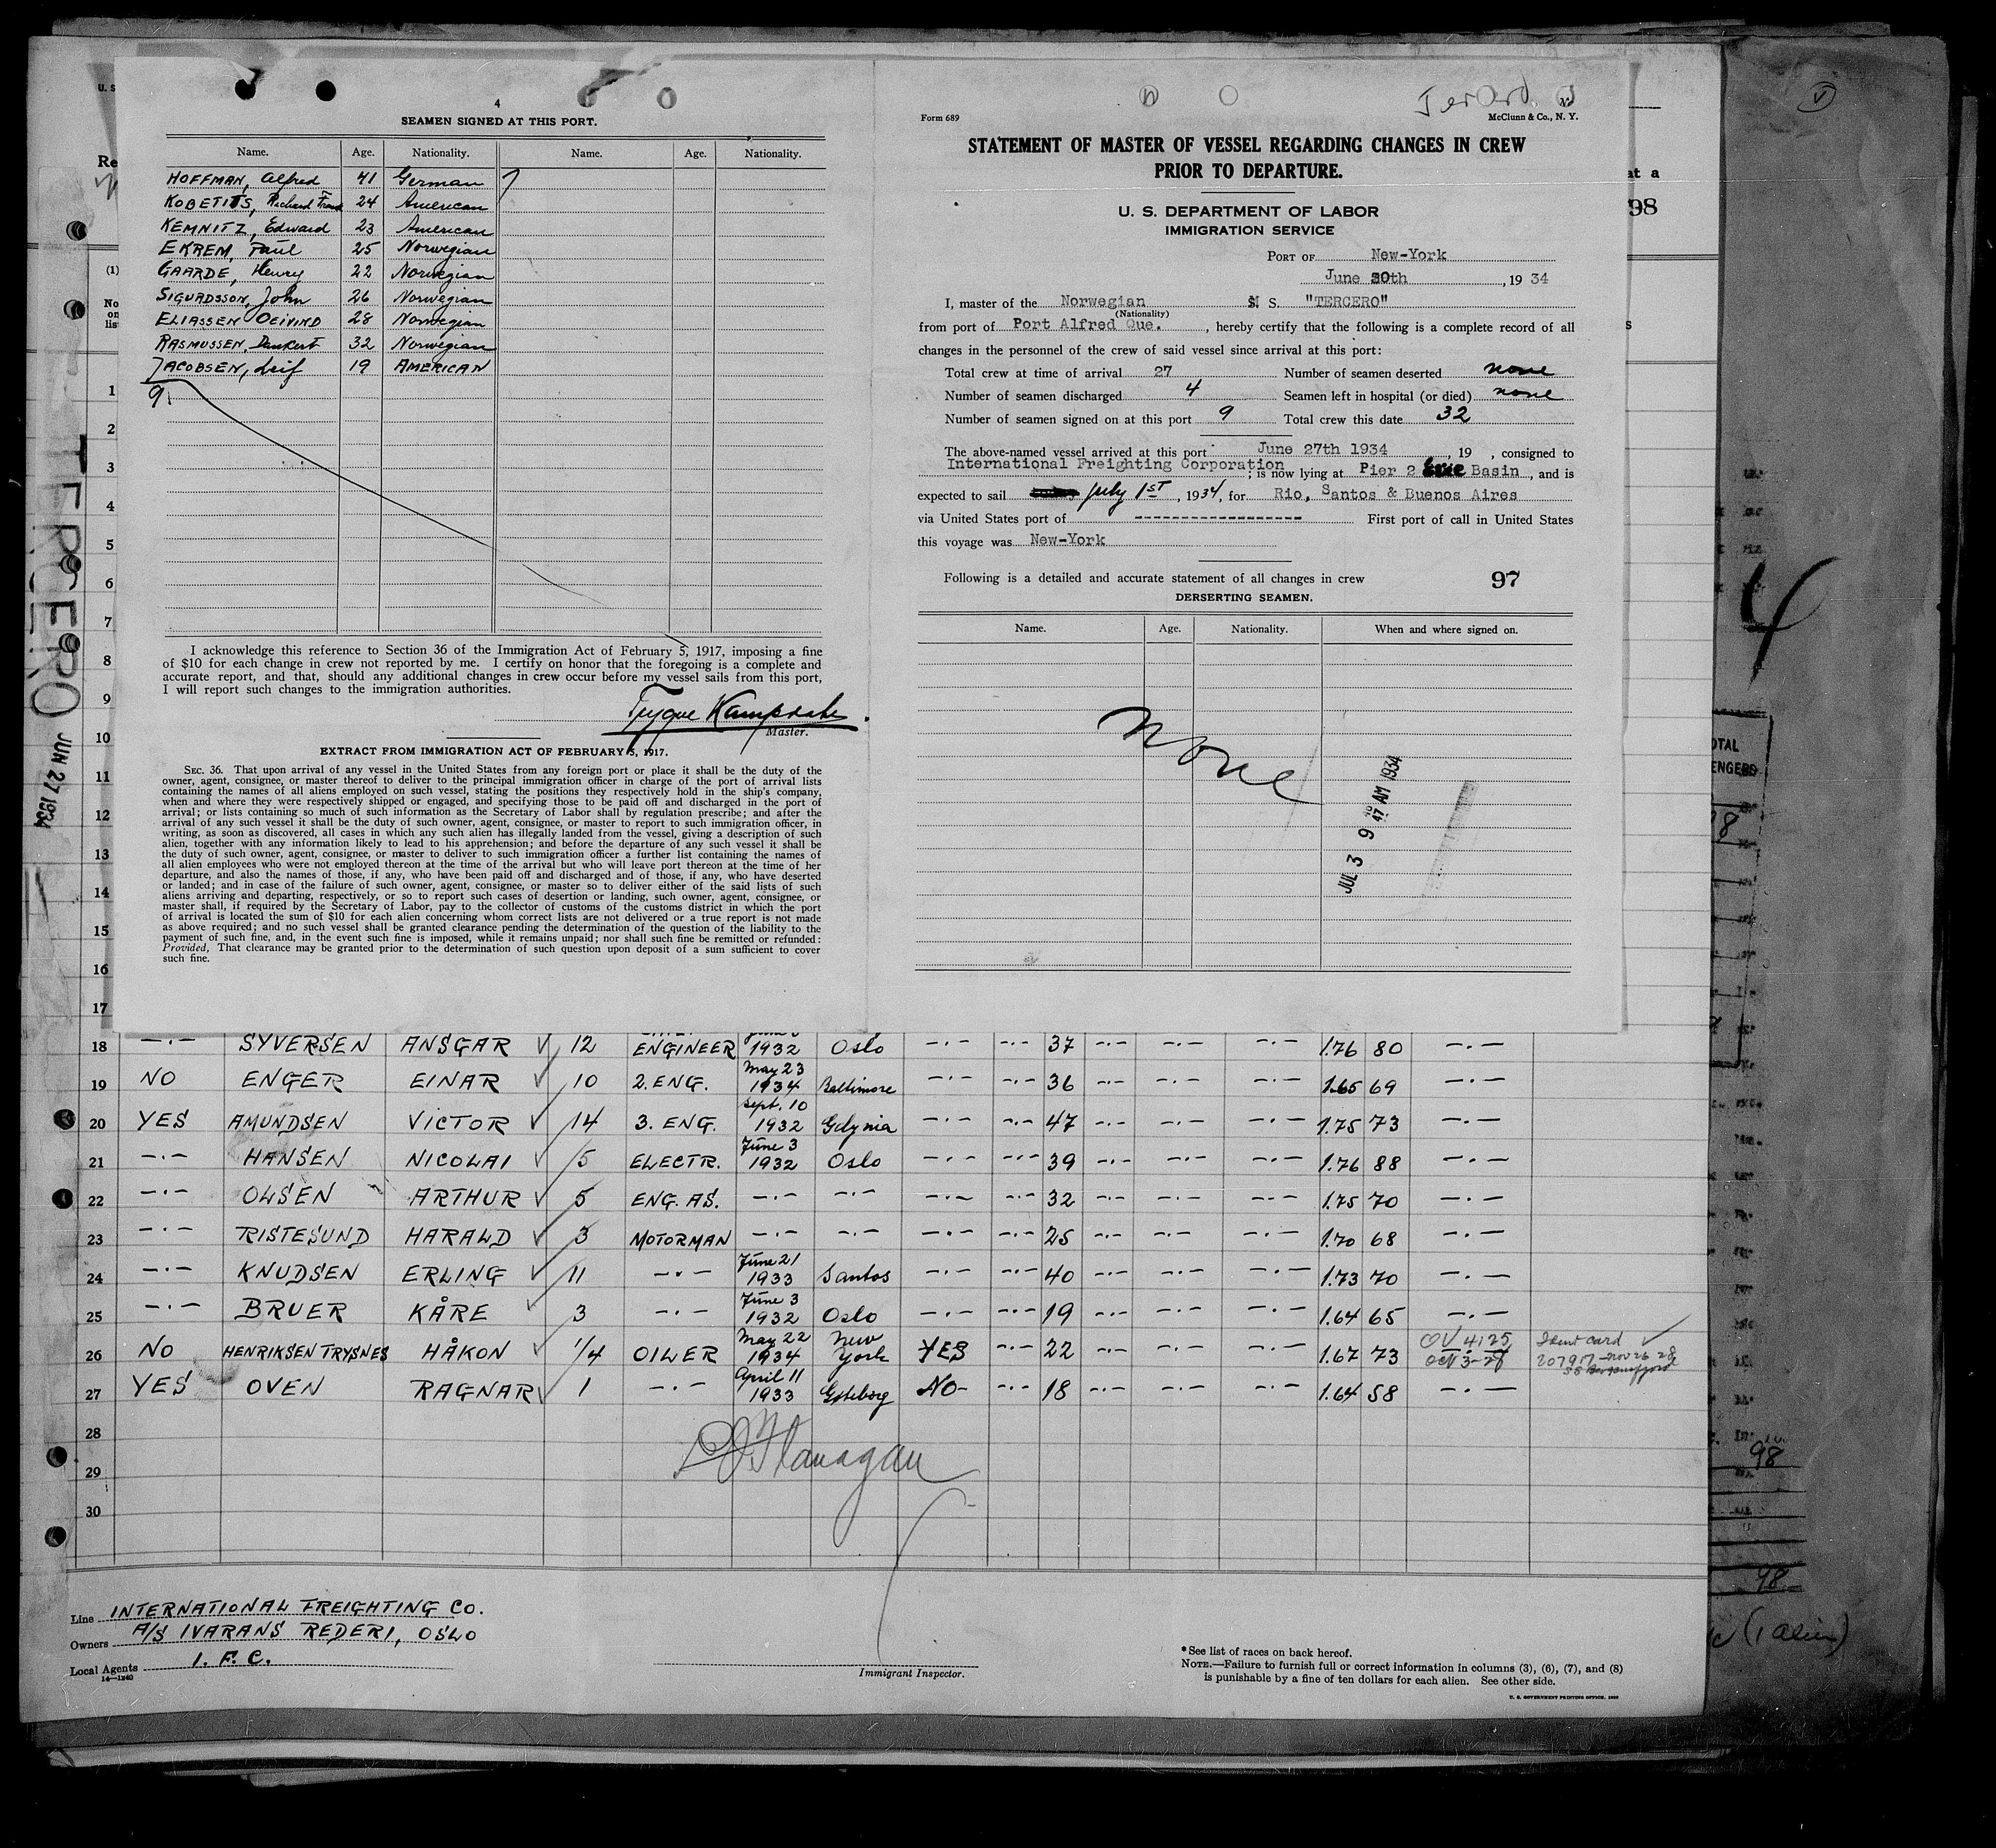 4
SEAMEN SIGNED AT THIS PORT.
Name. Age. Nationality. Name. Age. Nationality.
HOFFMAN, Alfred 41 German
KOBETITS, Richard Frank 24 American
KEMNITZ, Edward 23 American
EKREM, Paul 25 Norwegian
GAARDE, Henry 22 Norwegian
SIGURDSSON, John 26 Norwegian
ELIASSEN OEIVIND 28 Norwegian
RASMUSSEN, Dankert 32 Norwegian
JACOBSEN, Leif 19 AMERICAN
9
I acknowledge this reference to Section 36 of the Immigration Act of February 5, 1917, imposing a fine
of $10 for each change in crew not reported by me. I certify on honor that the foregoing is a complete and
accurate report, and that, should any additional changes in crew occur before my vessel sails from this port,
I will report such changes to the immigration authorities.
Trygve
Master.
EXTRACT FROM IMMIGRATION ACT OF FEBRUARY 5, 1917.
SEC. 36. That upon arrival of any vessel in the United States from any foreign port or place it shall be the duty of the
owner, agent, consignee, or master thereof to deliver to the principal immigration officer in charge of the port of arrival lists
containing the names of all aliens employed on such vessel, stating the positions they respectively hold in the ship's company,
when and where they were respectively shipped or engaged, and specifying those to be paid off and discharged in the port of
arrival; or lists containing so much of such information as the Secretary of Labor shall by regulation prescribe; and after the
arrival of any such vessel it shall be the duty of such owner, agent, consignee, or master to report to such immigration officer, in
writing, as soon as discovered, all cases in which any such alien has illegally landed from the vessel, giving a description of such
alien, together with any information likely to lead to his apprehension; and before the departure of any such vessel it shall be
the duty of such owner, agent, consignee, or master to deliver to such immigration officer a further list containing the names of
all alien employees who were not employed thereon at the time of the arrival but who will leave port thereon at the time of her
departure, and also the names of those, if any, who have been paid off and discharged and of those, if any, who have deserted
or landed; and in case of the failure of such owner, agent, consignee, or master so to deliver either of the said lists of such
aliens arriving and departing, respectively, or so to report such cases of desertion or landing, such owner, agent, consignee, or
master shall, if required by the Secretary of Labor, pay to the collector of customs of the customs district in which the port
of arrival is located the sum of $10 for each alien concerning whom correct lists are not delivered or a true report is not made
as above required; and no such vessel shall be granted clearance pending the determination of the question of the liability to the
payment of such fine, and, in the event such fine is imposed, while it remains unpaid; nor shall such fine be remitted or refunded:
Provided, That clearance may be granted prior to the determination of such question upon deposit of a sum sufficient to cover
such fine.
Form 689
McClunn & Co., N. Y.
STATEMENT OF MASTER OF VESSEL REGARDING CHANGES IN CREW
PRIOR TO DEPARTURE.
U. S. DEPARTMENT OF LABOR
IMMIGRATION SERVICE
PORT OF New-York
June 30th, 1934
I, master of the Norwegian M S. "TERCERO"
(Nationality)
from port of Port Alfred Que., hereby certify that the following is a complete record of all
changes in the personnel of the crew of said vessel since arrival at this port:
Total crew at time of arrival 27 Number of seamen deserted none
Number of seamen discharged 4 Seamen left in hospital (or died) none
Number of seamen signed on at this port 9 Total crew this date 32
The above-named vessel arrived at this port June 27th 1934, 19 , consigned to
International Freighting Corporation; is now lying at Pier 2 Erie Basin, and is
expected to sail July 1st, 1934, for Rio, Santos & Buenos Aires
via United States port of ------------------- First port of call in United States
this voyage was New-York
Following is a detailed and accurate statement of all changes in crew 97
DERSERTING SEAMEN.
Name. Age. Nationality. When and where signed on.
None
JUL 3 9 47 AM 1934
TERCERO JUN 27 1934
U. S
Re
(1)
at a
98
4
1
2
3
4
5
6
7
8
9
10
11
12
13
14
15
16
17
18 —·— SYVERSEN ANSGAR 12 ENGINEER 1932 Oslo —·— —·— 37 —·— —·— —·— 1.76 80 —·—
19 NO ENGER EINAR 10 2. ENG. May 23 1934 Baltimore —·— —·— 36 —·— —·— —·— 1.65 69 —·—
20 YES AMUNDSEN VICTOR 14 3. ENG. Sept. 10 1932 Gdynia —·— —·— 47 —·— —·— —·— 1.75 73 —·—
21 —·— HANSEN NICOLAI 5 ELECTR. June 3 1932 Oslo —·— —·— 39 —·— —·— —·— 1.76 88 —·—
22 —·— OLSEN ARTHUR 5 ENG. AS. —·— —·— —·— —·— 32 —·— —·— —·— 1.75 70 —·—
23 —·— RISTESUND HARALD 3 MOTORMAN —·— —·— —·— —·— 25 —·— —·— —·— 1.70 68 —·—
24 —·— KNUDSEN ERLING 11 —·— June 21 1933 Santos —·— —·— 40 —·— —·— —·— 1.73 70 —·—
25 —·— BRUER KÅRE 3 —·— June 3 1932 Oslo —·— —·— 19 —·— —·— —·— 1.64 65 —·—
26 NO HENRIKSEN TRYSNES HÅKON 1/4 OILER May 22 1934 New York YES —·— 22 —·— —·— —·— 1.67 73 OV 4125 Oct 3-28 Ident card 207917 Nov 26 28
27 YES OVEN RAGNAR 1 —·— April 11 1933 Gøteborg NO —·— 18 —·— —·— —·— 1.64 58 —·—
28
29
30
Flanagan
Line INTERNATIONAL FREIGHTING CO.
Owners A/S IVARANS REDERI, OSLO
Local Agents I. F. C.
14—1240
Immigrant Inspector.
*See list of races on back hereof.
NOTE.—Failure to furnish full or correct information in columns (3), (6), (7), and (8)
is punishable by a fine of ten dollars for each alien. See other side.
U. S. GOVERNMENT PRINTING OFFICE
98
98
(1 alien)